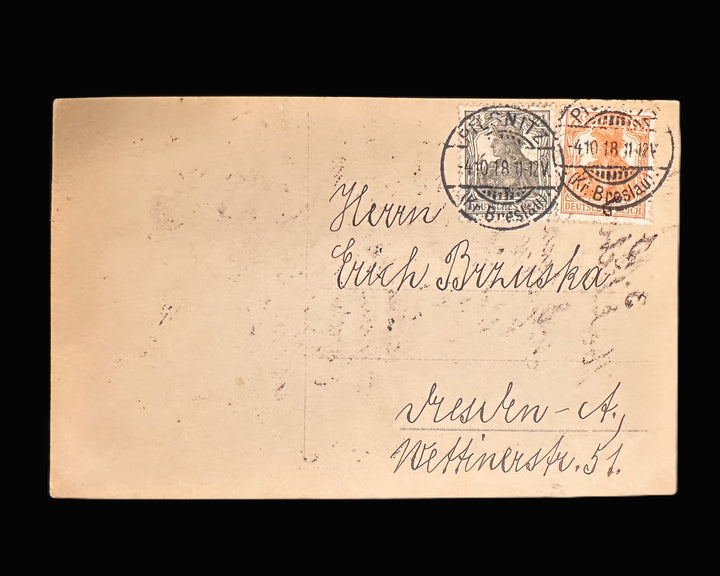 PILSNITZ
-4.10.18.11-12V.
(Kr. Breslau)
-4.10.18.11-12V.
(Kr. Breslau)
DEUTSCHES REICH
DEUTSCHES REICH
Herrn
Erich Brzuska
Dresden-A.,
Wettinerstr. 51.